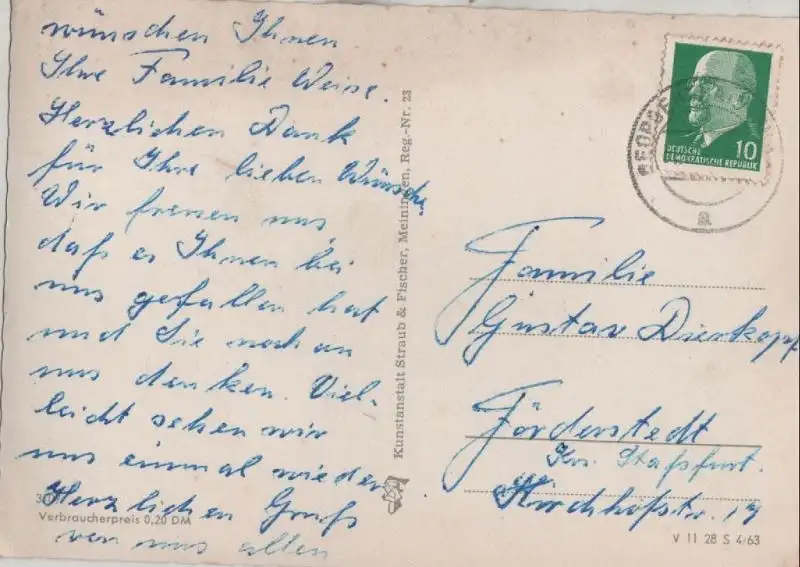 wünschen Ihnen
Ihre Familie Weise.
Herzlichen Dank
für Ihre lieben Wünsche.
Wir freuen uns,
daß es Ihnen bei
uns gefallen hat
und Sie noch an
uns denken. Viel-
leicht sehen wir
uns einmal wieder
Herzlichen Gruß
von uns allen
Verbraucherpreis 0,20 DM
Kunstanstalt Straub & Fischer, Meiningen, Reg.-Nr. 23
10
DEUTSCHE
DEMOKRATISCHE REPUBLIK
a
Familie
Gustav Dierkopf
Förderstedt
Krs. Staßfurt.
Kirchhofstr. 17
V 11 28 S 4/63